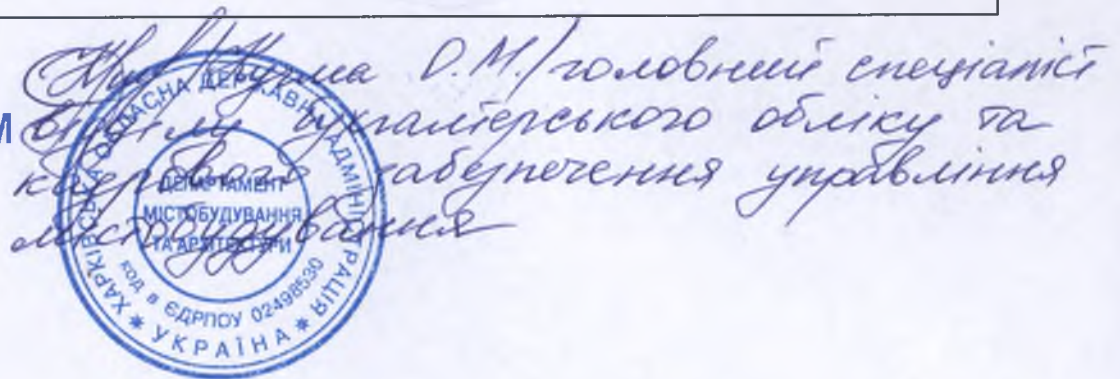 О.М./ головний спеціаліст
М відділу бухгалтерського обліку та
кадрового забезпечення управління
містобудування
ХАРКІВСЬКА ОБЛАСНА ДЕРЖАВНА АДМІНІСТРАЦІЯ
* УКРАЇНА *
ДЕПАРТАМЕНТ
МІСТОБУДУВАННЯ
ТА АРХІТЕКТУРИ
код в ЄДРПОУ 02498530